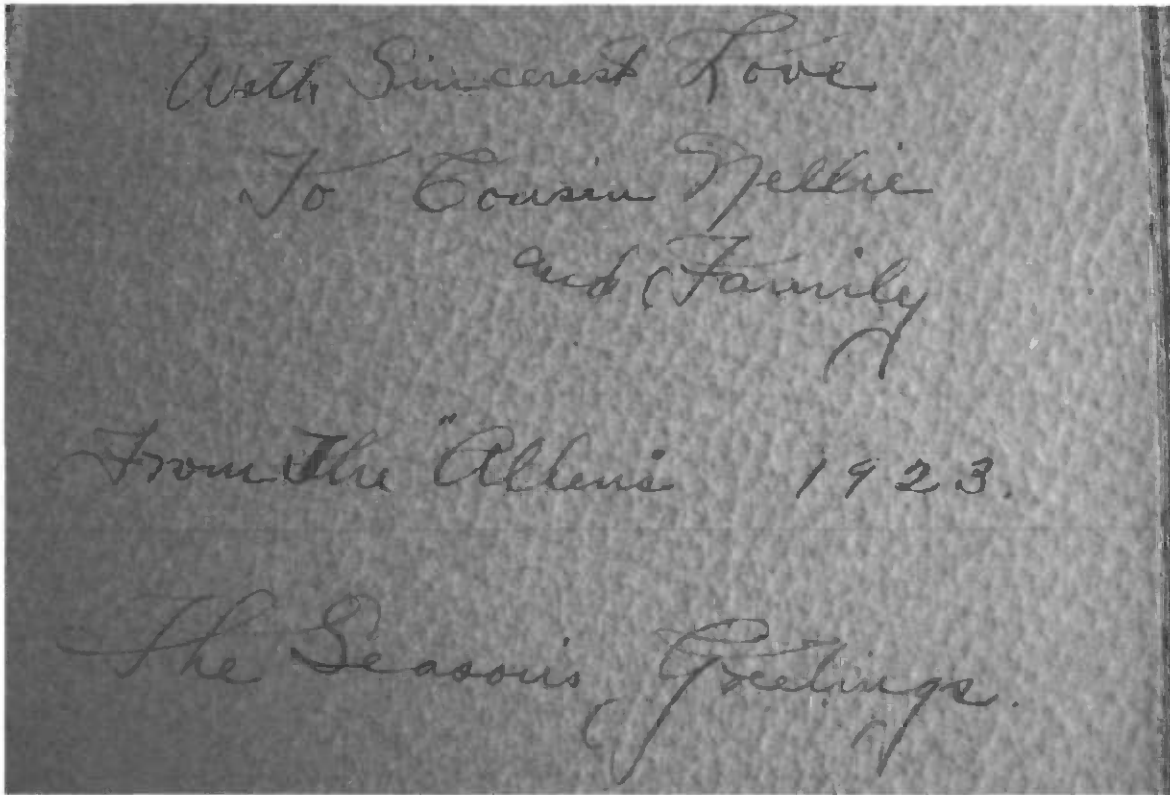 With Sincerest Love
To Cousin Nellie
and Family
From the "Allens 1923.
The Seasons Greetings.